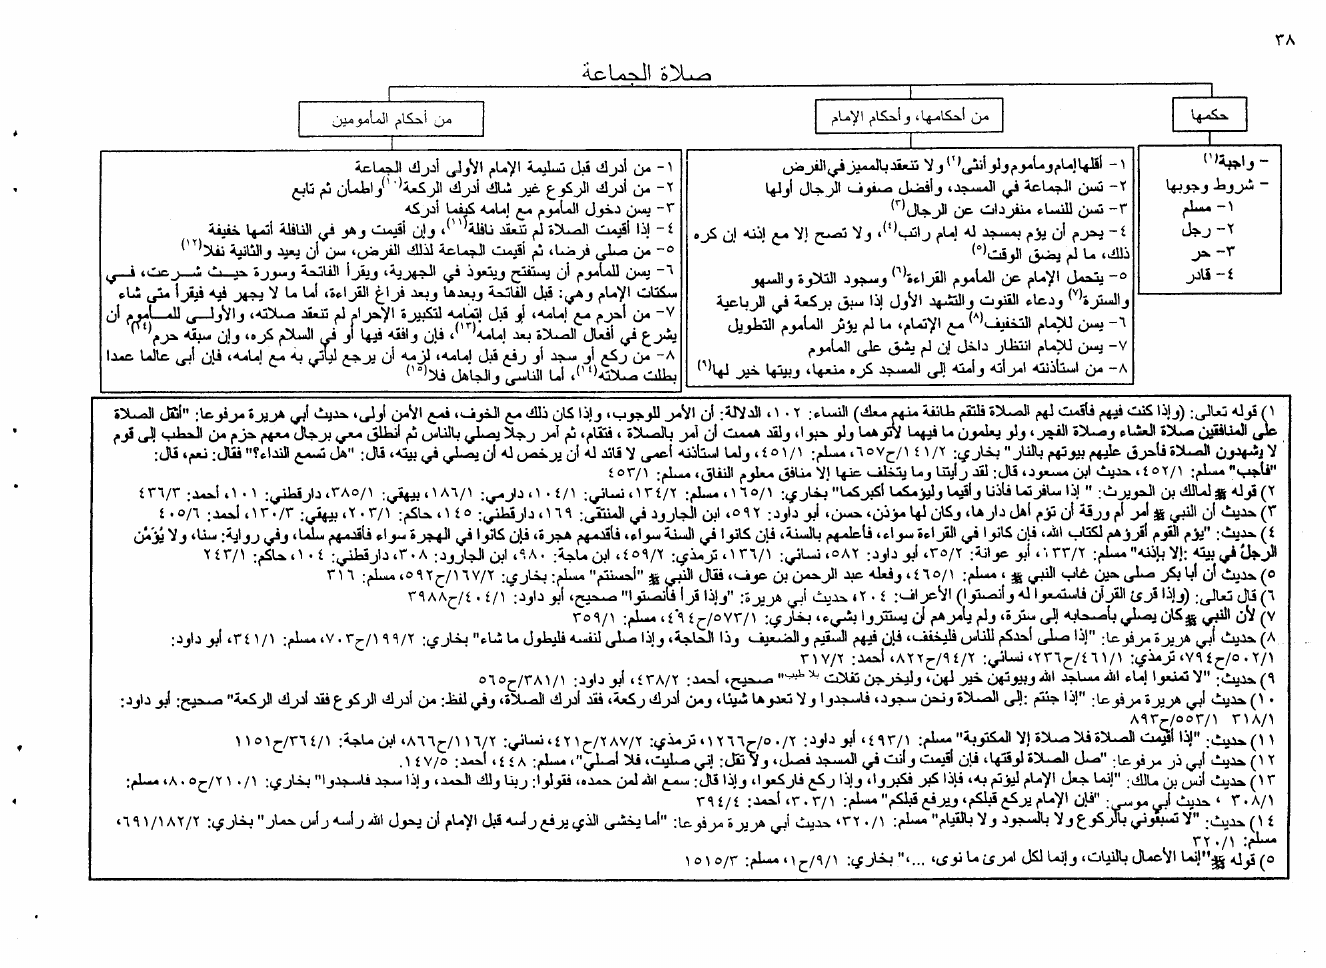 ٣٨
صلاة الجماعة
حكمها
من أحكامها، وأحكام الإمام
من أحكام المأمومين
- واجبة(١)
- شروط وجوبها
١- مسلم
٢- رجل
٣- حر
٤- قادر
١- أقلها إمام ومأموم ولو أنثى(٢) ولا تنعقد بالمميز في الفرض
٢- تسن الجماعة في المسجد، وأفضل صفوف الرجال أولها
٣- تسن للنساء منفردات عن الرجال(٣)
٤- يحرم أن يؤم بمسجد له إمام راتب(٤)، ولا تصح إلا مع إذنه إن كره
ذلك، ما لم يضق الوقت(٥)
٥- يتحمل الإمام عن المأموم القراءة(٦) وسجود التلاوة والسهو
والسترة(٧) ودعاء القنوت والتشهد الأول إذا سبق بركعة في الرباعية
٦- يسن للإمام التخفيف(٨) مع الإتمام، ما لم يؤثر المأموم التطويل
٧- يسن للإمام انتظار داخل إن لم يشق على المأموم
٨- من استأذنته امرأته وأمته إلى المسجد كره منعها، وبيتها خير لها(٩)
١- من أدرك قبل تسليمة الإمام الأولى أدرك الجماعة
٢- من أدرك الركوع غير شاك أدرك الركعة(١٠) واطمأن ثم تابع
٣- يسن دخول المأموم مع إمامه كيفما أدركه
٤- إذا أقيمت الصلاة لم تنعقد نافلة(١١)، وإن أقيمت وهو في النافلة أتمها خفيفة
٥- من صلى فرضا، ثم أقيمت الجماعة لذلك الفرض، سن أن يعيد والثانية نفلا(١٢)
٦- يسن للمأموم أن يستفتح ويتعوذ في الجهرية، ويقرأ الفاتحة وسورة حيث شرعت، في
سكتات الإمام وهي: قبل الفاتحة وبعدها وبعد فراغ القراءة، أما ما لا يجهر فيه فيقرأ متى شاء
٧- من أحرم مع إمامه، أو قبل إتمامه لتكبيرة الإحرام لم تنعقد صلاته، والأولى للمأموم أن
يشرع في أفعال الصلاة بعد إمامه(١٣)، فإن وافقه فيها أو في السلام كره، وإن سبقه حرم(١٤)
٨- من ركع أو سجد أو رفع قبل إمامه، لزمه أن يرجع ليأتي به مع إمامه، فإن أبى عالما عمدا
بطلت صلاته(١٤)، أما الناسي والجاهل فلا(١٥)
١) قوله تعالى: (وإذا كنت فيهم فأقمت لهم الصلاة فلتقم طائفة منهم معك) النساء: ١٠٢، الدلالة: أن الأمر للوجوب، وإذا كان ذلك مع الخوف، فمع الأمن أولى، حديث أبي هريرة مرفوعا: "أثقل الصلاة
على المنافقين صلاة العشاء وصلاة الفجر، ولو يعلمون ما فيهما لأتوهما ولو حبوا، ولقد هممت أن آمر بالصلاة، فتقام، ثم آمر رجلا يصلي بالناس ثم أنطلق معي برجال معهم حزم من الحطب إلى قوم
لا يشهدون الصلاة فأحرق عليهم بيوتهم بالنار" بخاري: ١٤١/٢ح٦٥٧، مسلم: ٤٥١/١، ولما استأذنه أعمى لا قائد له أن يرخص له أن يصلي في بيته، قال: "هل تسمع النداء؟" فقال: نعم، قال:
"فأجب" مسلم: ٤٥٢/١، حديث ابن مسعود، قال: لقد رأيتنا وما يتخلف عنها إلا منافق معلوم النفاق، مسلم: ٤٥٣/١
٢) قوله ﷺ لمالك بن الحويرث: " إذا سافرتما فأذنا وأقيما وليؤمكما أكبركما" بخاري: ١٦٥/١، مسلم: ١٣٤/٢، نسائي: ١٠٤/١، دارمي: ١٨٦/١، بيهقي: ٣٨٥/١، دارقطني: ١٠١، أحمد: ٤٣٦/٣
٣) حديث أن النبي ﷺ أمر أم ورقة أن تؤم أهل دارها، وكان لها مؤذن، حسن، أبو داود: ٥٩٢، ابن الجارود في المنتقى: ١٦٩، دارقطني: ١٤٥، حاكم: ٢٠٣/١، بيهقي: ١٣٠/٣، أحمد: ٤٠٥/٦
٤) حديث: "يؤم القوم أقرؤهم لكتاب الله، فإن كانوا في القراءة سواء، فأعلمهم بالسنة، فإن كانوا في السنة سواء، فأقدمهم هجرة، فإن كانوا في الهجرة سواء فأقدمهم سلما، وفي رواية: سنا، ولا يؤمن
الرجل في بيته :إلا بإذنه" مسلم: ١٣٣/٢، أبو عوانة: ٣٥/٢، أبو داود: ٥٨٢، نسائي: ١٣٦/١، ترمذي: ٤٥٩/٢، ابن ماجة: ٩٨٠، ابن الجارود: ٣٠٨، دارقطني: ١٠٤، حاكم: ٢٤٣/١
٥) حديث أن أبا بكر صلى حين غاب النبي ﷺ ، مسلم: ٤٦٥/١، وفعله عبد الرحمن بن عوف، فقال النبي ﷺ "أحسنتم" مسلم: بخاري: ١٦٧/٢ح٥٩٢، مسلم: ٣١٦
٦) قال تعالى: (وإذا قرئ القرآن فاستمعوا له وأنصتوا) الأعراف: ٢٠٤، حديث أبي هريرة: "وإذا قرأ فأنصتوا" صحيح، أبو داود: ٤٠٤/١ح٣٩٨٨
٧) لأن النبي ﷺ كان يصلي بأصحابه إلى سترة، ولم يأمرهم أن يستتروا بشيء، بخاري: ٥٧٣/١ح٤٩٤، مسلم: ٣٥٩/١
٨) حديث أبي هريرة مرفوعا: "إذا صلى أحدكم للناس فليخفف، فإن فيهم السقيم والضعيف وذا الحاجة، وإذا صلى لنفسه فليطول ما شاء" بخاري: ١٩٩/٢ح٧٠٣، مسلم: ٣٤١/١، أبو داود:
٥٠٢/١ح٧٩٤، ترمذي: ٤٦١/١ح٢٣٦، نسائي: ٩٤/٢ح٨٢٢، أحمد: ٣١٧/٢
٩) حديث: "لا تمنعوا إماء الله مساجد الله وبيوتهن خير لهن، وليخرجن تفلات بلا طيب" صحيح، أحمد: ٤٣٨/٢، أبو داود: ٣٨١/١ح٥٦٥
١٠) حديث أبي هريرة مرفوعا: "إذا جئتم :إلى الصلاة ونحن سجود، فاسجدوا ولا تعدوها شيئا، ومن أدرك ركعة، فقد أدرك الصلاة، وفي لفظ: من أدرك الركوع فقد أدرك الركعة" صحيح: أبو داود:
٣١٨/١ ٥٥٣/١ح٨٩٣
١١) حديث: "إذا أقيمت الصلاة فلا صلاة إلا المكتوبة" مسلم: ٤٩٣/١، أبو داود: ٥٠/٢ح١٢٦٦، ترمذي: ٢٨٧/٢ح٤٢١، نسائي: ١١٦/٢ح٨٦٦، ابن ماجة: ٣٦٤/١ح١١٥١
١٢) حديث أبي ذر مرفوعا: "صل الصلاة لوقتها، فإن أقيمت وأنت في المسجد فصل، ولا تقل: إني صليت، فلا أصلي"، مسلم: ٤٤٨، أحمد: ١٤٧/٥
١٣) حديث أنس بن مالك: "إنما جعل الإمام ليؤتم به، فإذا كبر فكبروا، وإذا ركع فاركعوا، وإذا قال: سمع الله لمن حمده، فقولوا: ربنا ولك الحمد، وإذا سجد فاسجدوا" بخاري: ٢١٠/١ح٨٠٥، مسلم:
٣٠٨/١ ، حديث أبي موسى: "فإن الإمام يركع قبلكم، ويرفع قبلكم" مسلم: ٣٠٣/١، أحمد: ٣٩٤/٤
١٤) حديث: "لا تسبقوني بالركوع ولا بالسجود ولا بالقيام" مسلم: ٣٢٠/١، حديث أبي هريرة مرفوعا: "أما يخشى الذي يرفع رأسه قبل الإمام أن يحول الله رأسه رأس حمار" بخاري: ٦٩١/١٨٢/٢،
مسلم: ٣٢٠/١
٥) قوله ﷺ "إنما الأعمال بالنيات، وإنما لكل امرئ ما نوى، ...،" بخاري: ٩/١ح١، مسلم: ١٥١٥/٣